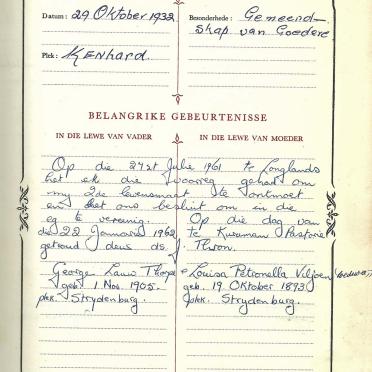 Datum: 29 Oktober 1932.
Besonderhede: Gemeend-
skap van Goedere
Plek: Kenhard.
BELANGRIKE GEBEURTENISSE
IN DIE LEWE VAN VADER
IN DIE LEWE VAN MOEDER
Op die 27ste Julie 1961 te Longlands
het ek die voorreg gehad om
my 2de lewensmaat te ontmoet
en het ons besluit om in die
eg te verenig. Op die dag van
die 22 Januarie 1962 te Kuruman Pastorie
getroud deur ds. J. Theron.
George Lauw Thorpe
geb. 1 Nov. 1905.
plek. Strydenburg.
Louisa Petronella Viljoen (weduwee)
geb. 19 Oktober 1893
plek. Strydenburg.